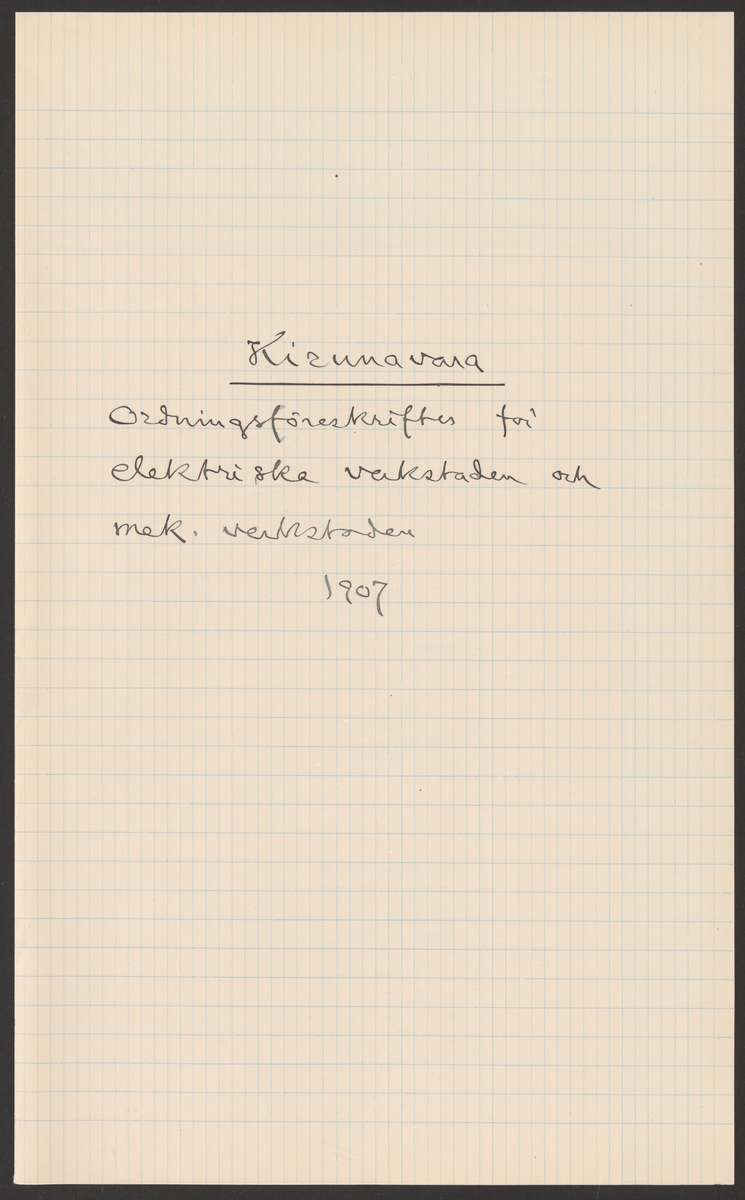 Kirunavara
Ordningsföreskrifter för
elektriska verkstaden och
mek. verkstaden
1907